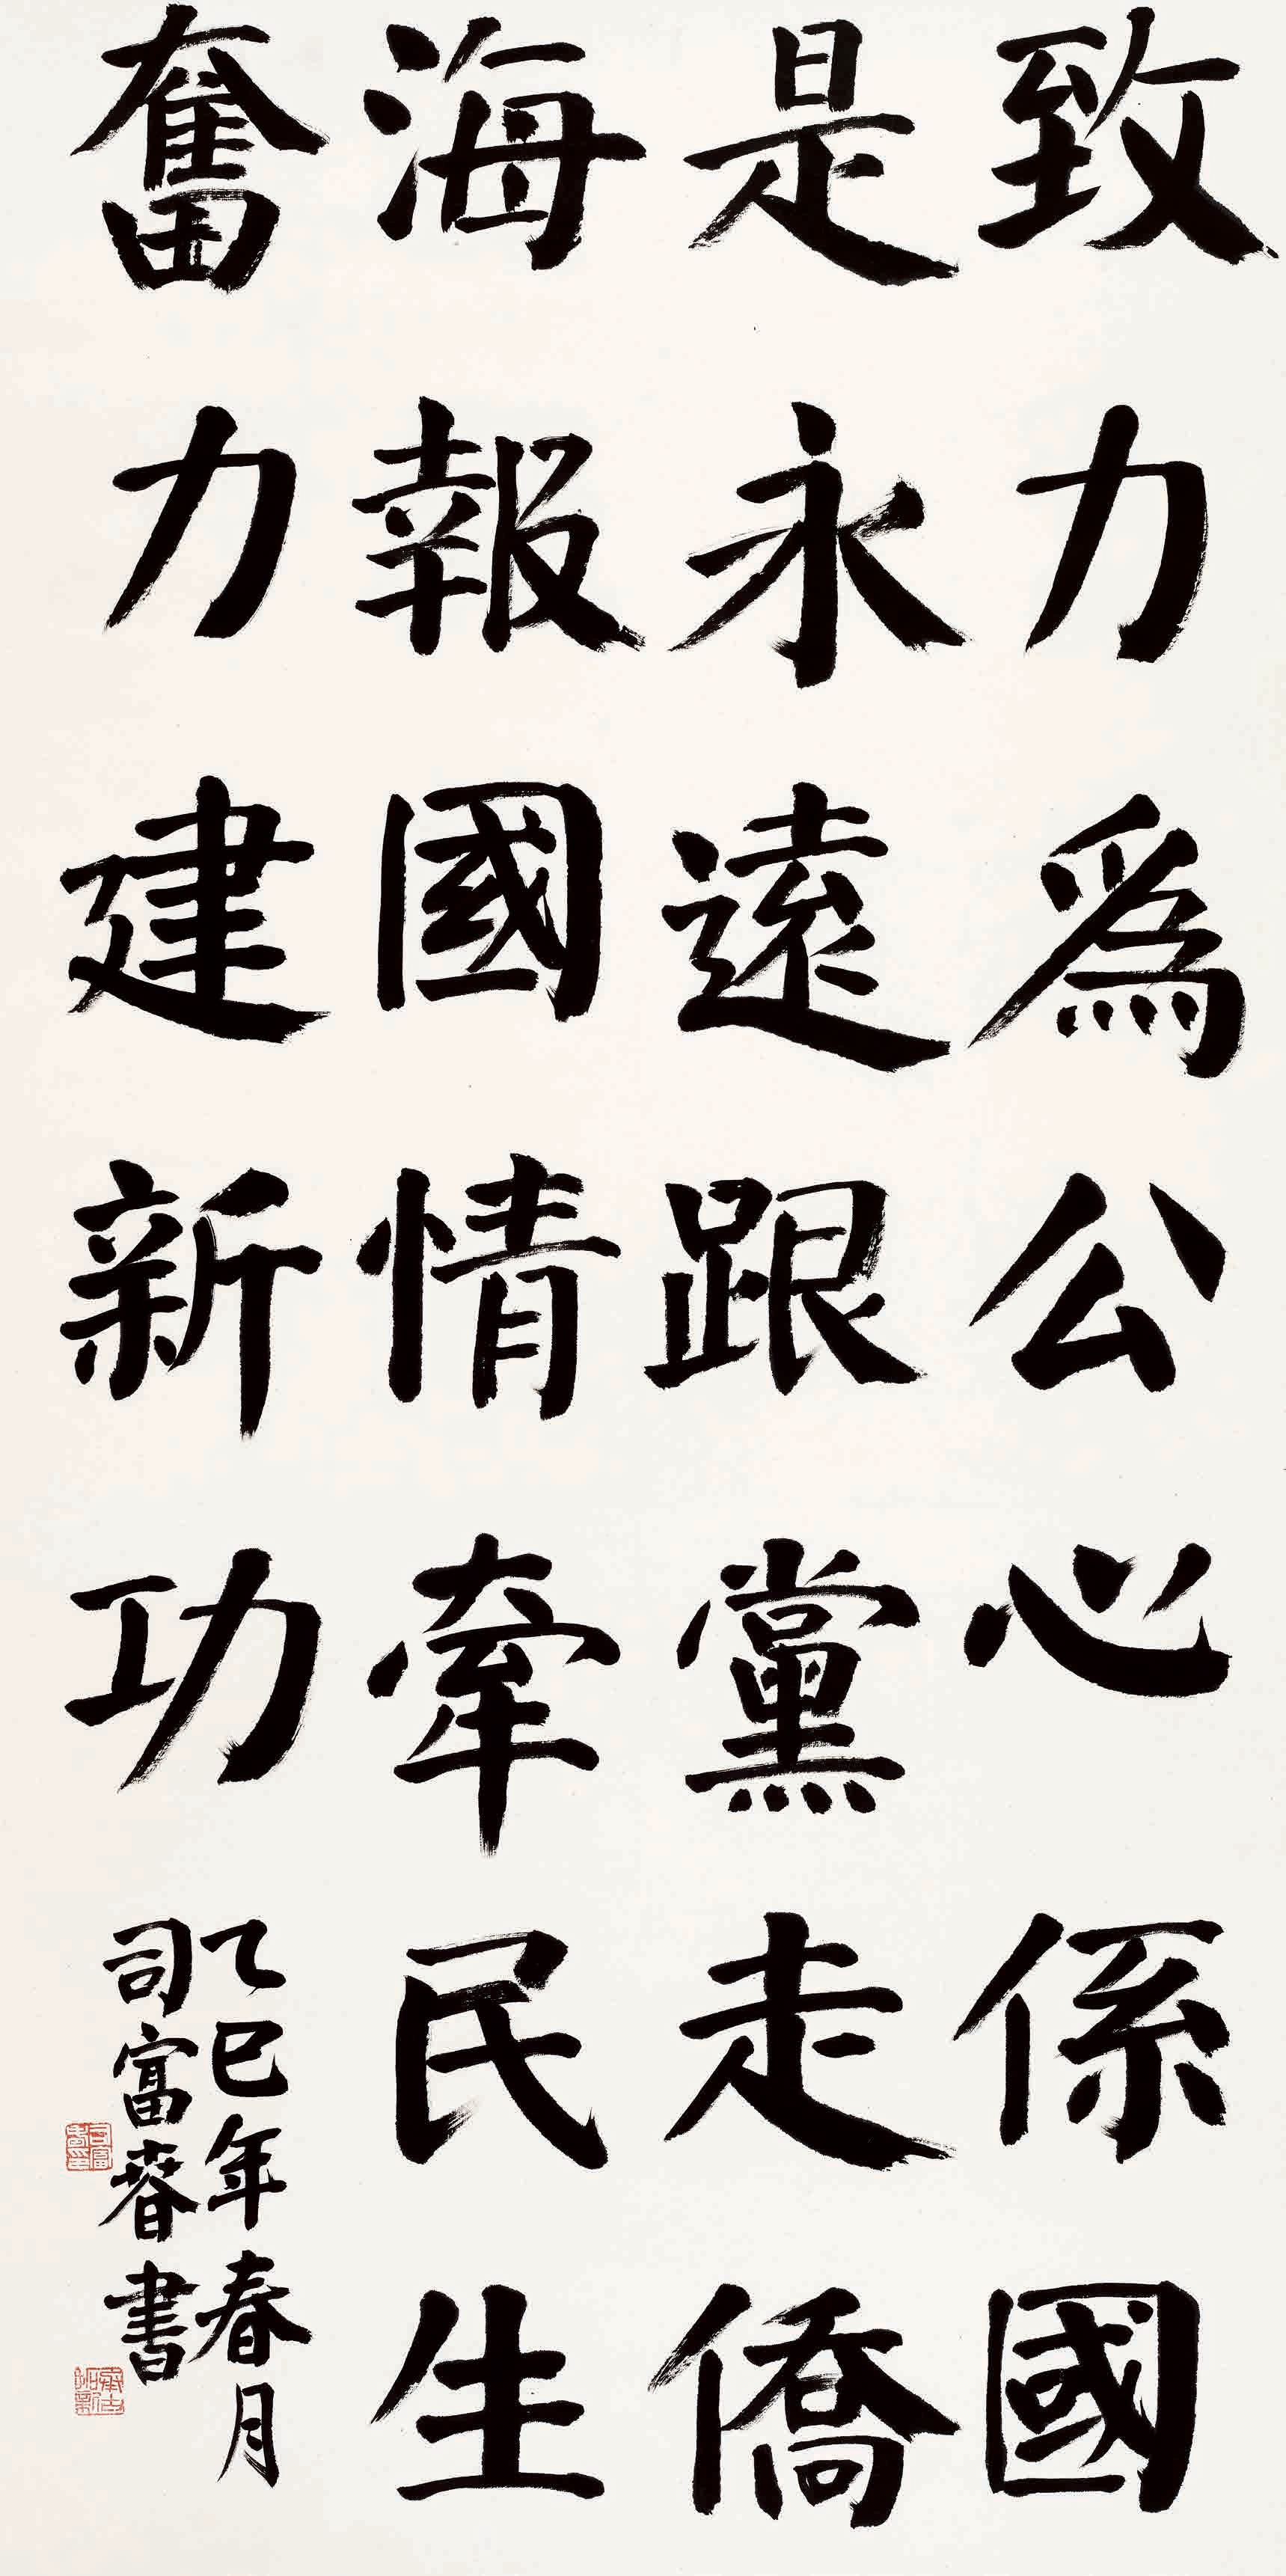 致力爲公心係國
是永遠跟黨走僑
海報國情牽民生
奮力建新功
乙巳年春月
司富春書